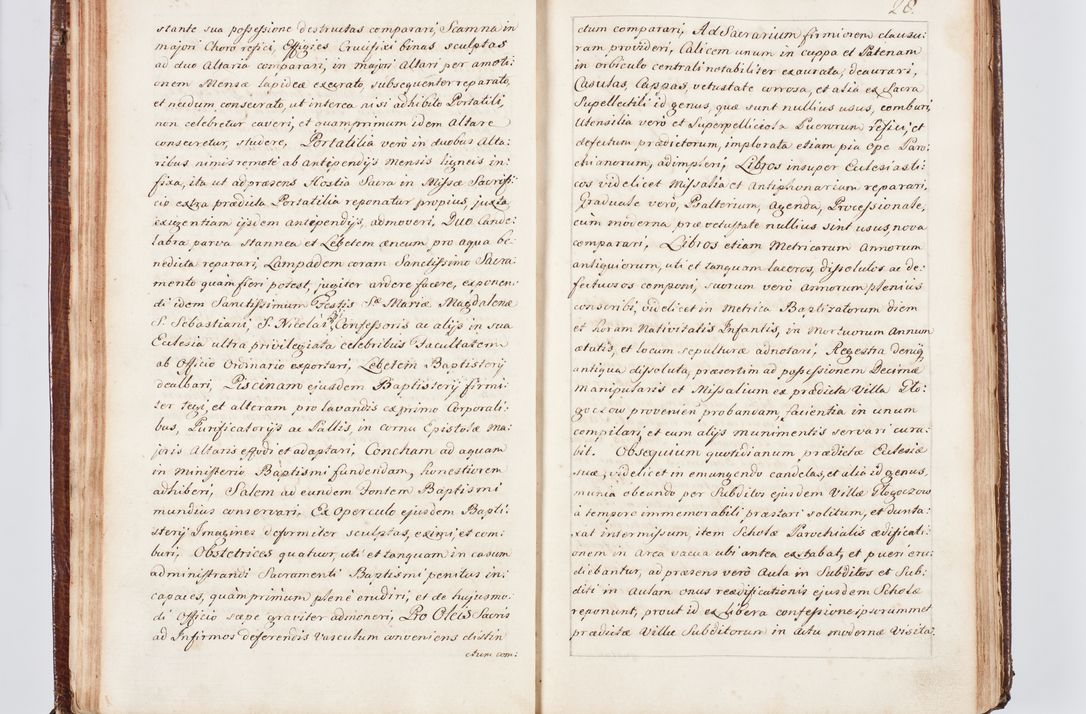 stante sua possessione destructas comparari, Scamna in
majori Choro refici, Effigies Crucifixi binas sculptas
ad duo Altaria comparari, in majori Altari per amoti:
onem Mensæ lapideæ execrato, subsequenter reparato,
et necdum consecrato, ut interea nisi adhibito Portatili,
non celebretur caveri, et quamprimum idem Altare
consecretur, studere, Portatilia verò in duobus Alta:
ribus nimis remotè ab antipendijs mensis ligneis in:
fixa, ita ut ad præsens Hostia Sacra in Missæ Sacrifi:
cio extra prædicta Portatilia reponatur propius juxta
exigentiam ijsdem antependijs, admoveri. Duo Cande:
labra parva stannea et Lebetem æneum pro aqua be:
nedicta reparari, Lampadem coram Sanctissimo Sacra:
mento quam fieri potest, jugiter ardere facere, exponen:
di idem Sanctissimum Festis Sæ Mariæ Magdalenæ
S. Sebastiani, S. Nicolai Confessoris ac alijs in sua
Ecclesia ultra privilegiata celebribus Facultatem
ab Officio Ordinario exportari, Lebetem Baptisterij
dealbari, Piscinam ejusdem Baptisterij firmi:
ter tegi, et alteram pro lavandis ex primo Corporali:
bus, Purificatorijs ac Pallis, in cornu Epistolæ Ma:
joris Altaris effodi et adaptari, Concham ad aquam
in Ministerio Baptismi fundendam, honestiorem
adhiberi, Salem ad eundem Fontem Baptismi
mundius conservari. Ex Operculo ejusdem Bapti:
sterij Imagines deformiter sculptas, exigi, et com:
buri, Obstetrices quatuor, uti et tanquam in casum
administrandi Sacramenti Baptismi penitus in:
capaces, quàm primùm plenè erudiri, et de hujusmo:
di Officio sæpe graviter admoneri, Pro Oleis Sacris
ad Infirmos deferendis Vasculum conveniens distin
ctum com:
28.
ctum comparari, Ad Sacrarium firmiorem clausu:
ram provideri, Calicem unum in cuppa et Patenam
in orbiculo centrali notabiliter exaurata, deaurari,
Casulas, Cappas, vetustate corrosa, et alia ex Sacra
Supellectili id genus, quæ sunt nullius usus, comburi,
Utensilia verò et Superpelliciola Puerorum refici, et
defectum prædictorum, implorata etiam pia Ope Paro:
chianorum, adimpleri, Libros insuper Ecclesiasti:
cos videlicet Missalia et Antiphonarium reparari,
Graduale verò, Psalterium, Agenda, Processionale,
cùm moderna præ vetustate nullius sint usus, nova
comparari, Libros etiam Metricarum Annorum
antiquiorum, uti et tanquam laceros, dissolutos ac de:
fectuosos componi, suorum verò Annorum plenius
conscribi, videlicet in Metrica Baptizatorum diem
et horam Nativitatis Infantis, in Mortuorum Annum
ætatis, et locum sepulturæ adnotari, Regestra deniq
antiqua dissoluta, præsertim ad possessionem Decimæ
Manipularis et Missalium ex prædicta Villa Glo:
goczow provenien probandam, facientia in unum
compilari, et cum alijs munimentis servari cura:
bit. Obsequium quotidianum prædictæ Ecclesiæ
suæ, videlicet in emungendo candelas, et alia id genus
munia obeundo per Subditos ejusdem Villæ Glogoczow
à tempore immemorabili præstari solitum, et dunta:
xat intermissum, item Scholæ Parochialis ædificati:
onem in Area vacua ubi antea extabat, et pueri eru:
diebantur, ad præsens verò Aula in Subditos et Sub:
diti in Aulam onus reædificationis ejusdem Scholæ
reponunt, prout id ex Libera confessione ipsorummet
prædictæ Villæ Subditorum in Actu modernæ Visita: